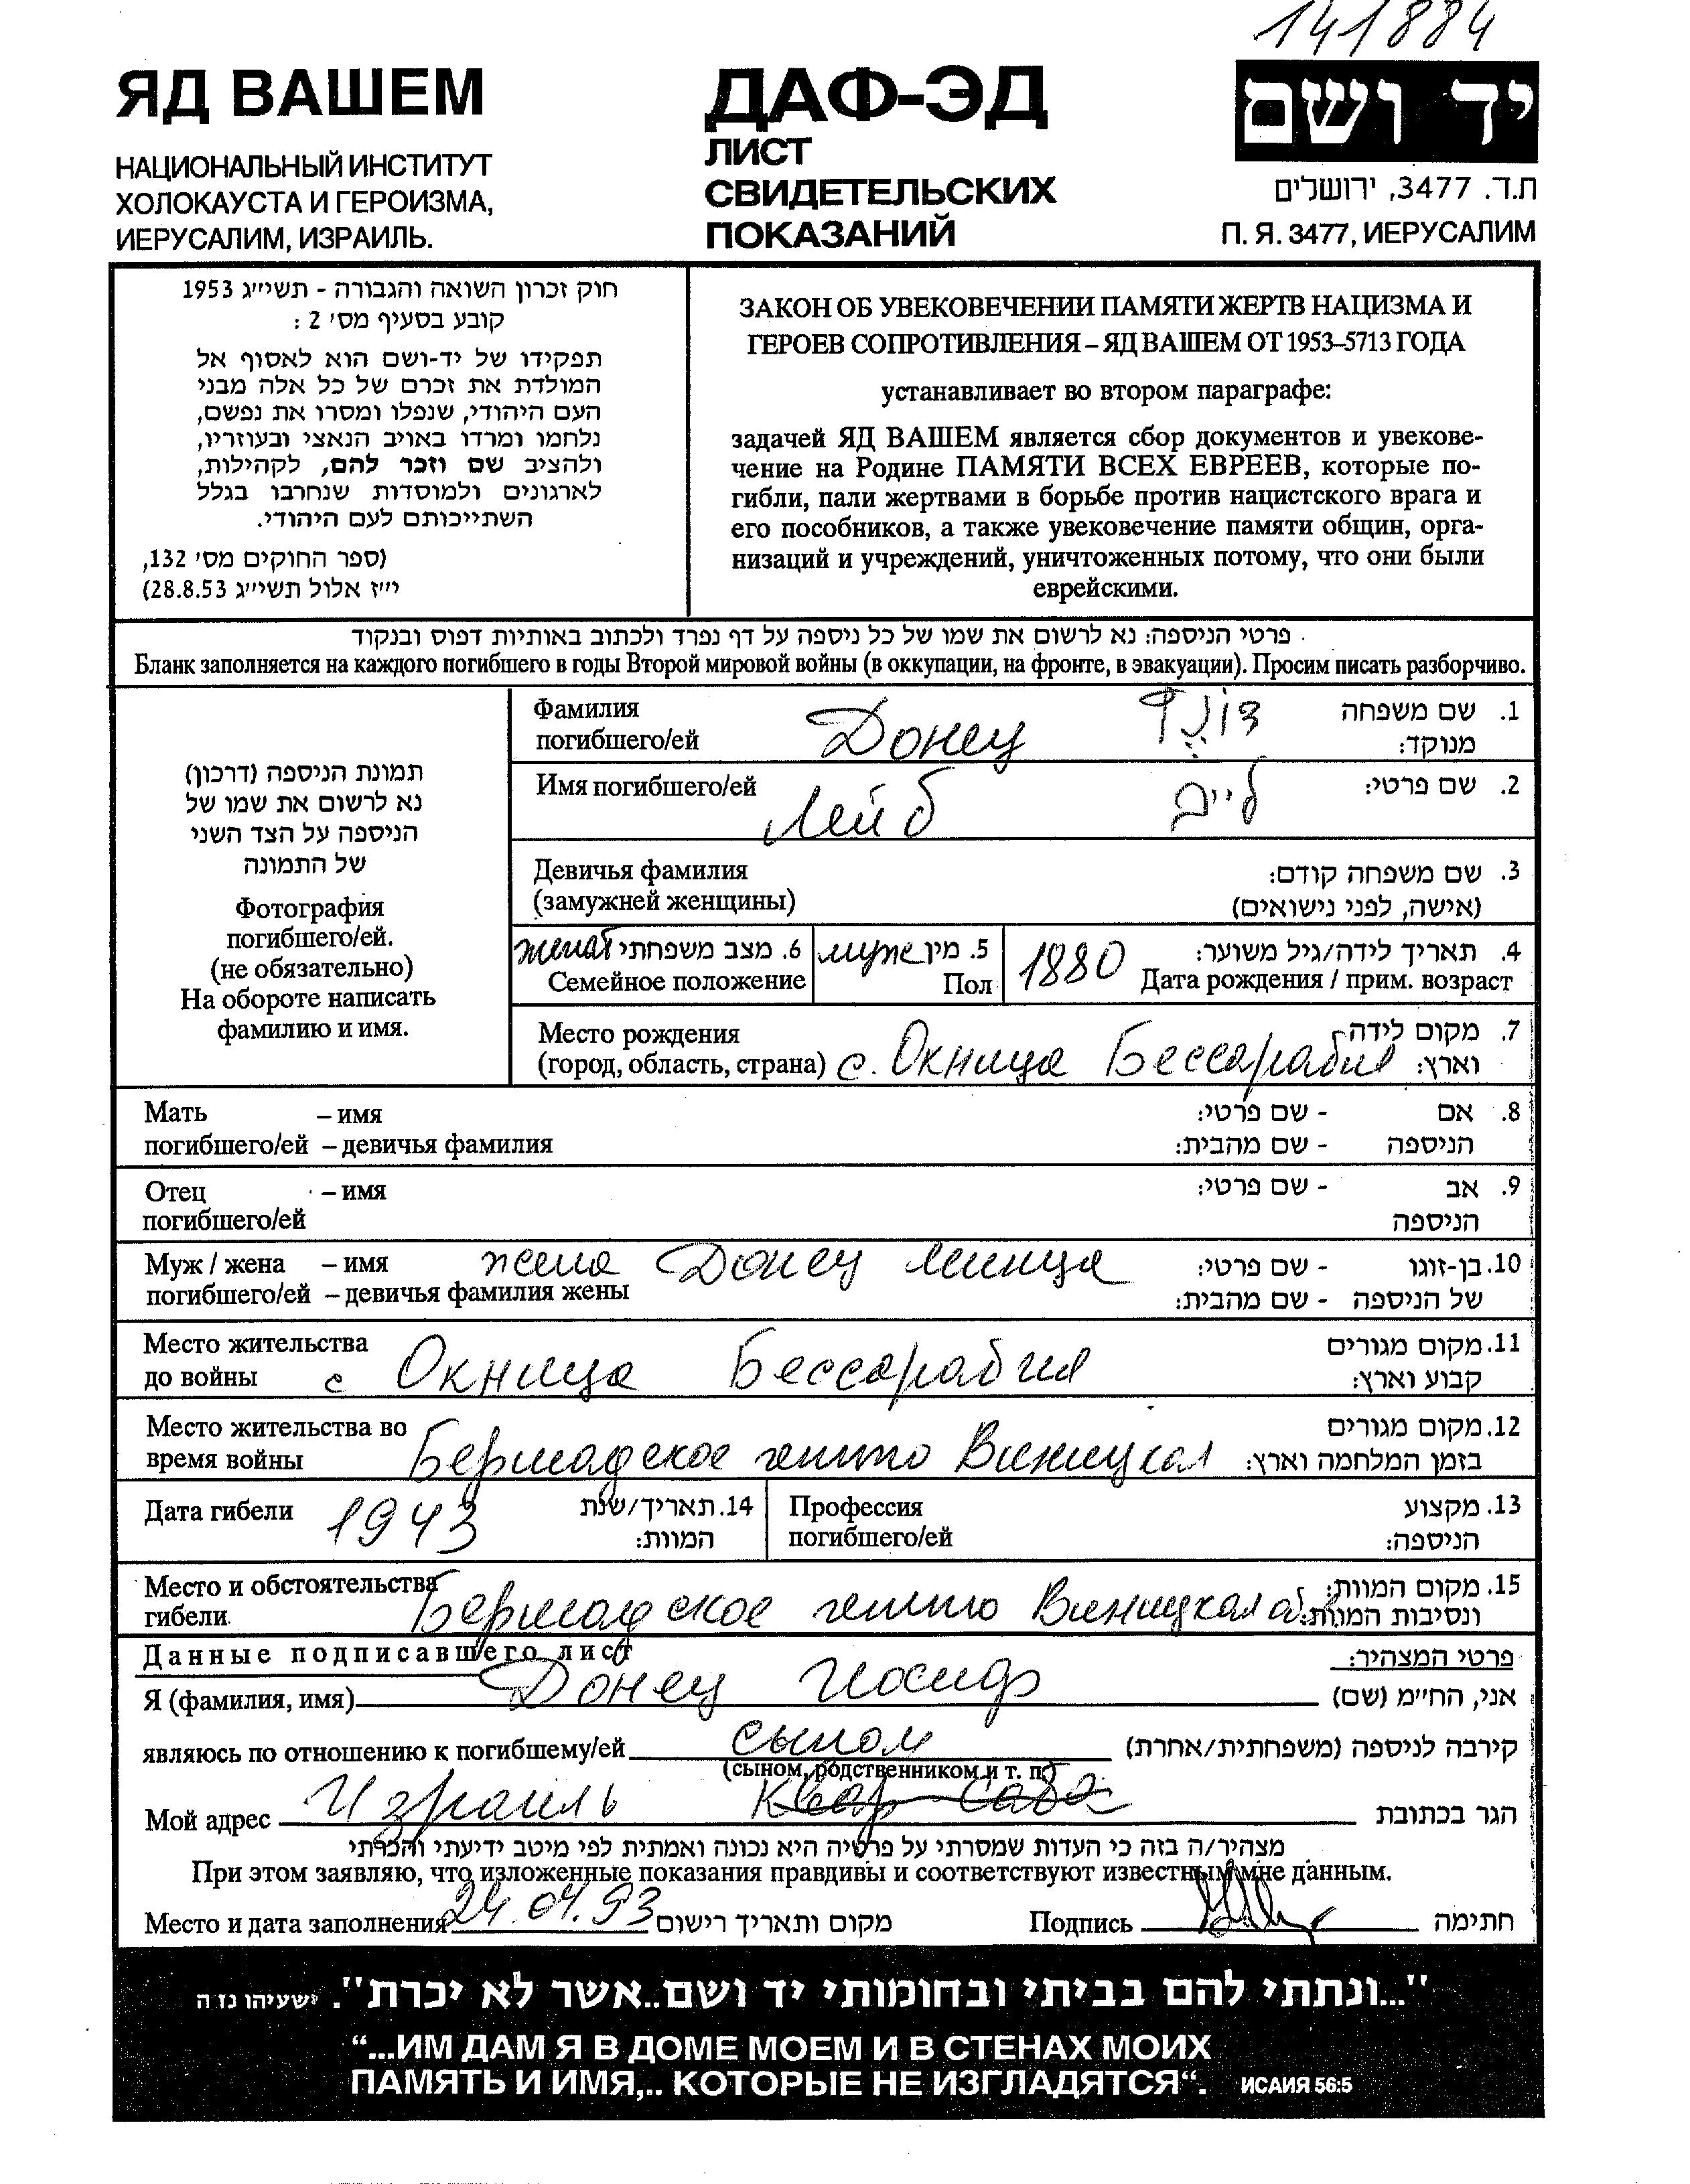 141884
ЯД ВАШЕМ
НАЦИОНАЛЬНЫЙ ИНСТИТУТ
ХОЛОКАУСТА И ГЕРОИЗМА,
ИЕРУСАЛИМ, ИЗРАИЛЬ.
ДАФ-ЭД
ЛИСТ
СВИДЕТЕЛЬСКИХ
ПОКАЗАНИЙ
יד ושם
ת.ד. 3477, ירושלים
П. Я. 3477, ИЕРУСАЛИМ
חוק זכרון השואה והגבורה - תשי״ג 1953
קובע בסעיף מס׳ 2 :
תפקידו של יד-ושם הוא לאסוף אל
המולדת את זכרם של כל אלה מבני
העם היהודי, שנפלו ומסרו את נפשם,
נלחמו ומרדו באויב הנאצי ובעוזריו,
ולהציב שם וזכר להם, לקהילות,
לארגונים ולמוסדות שנחרבו בגלל
השתייכותם לעם היהודי.
(ספר החוקים מס׳ 132,
י״ז אלול תשי״ג 28.8.53)
ЗАКОН ОБ УВЕКОВЕЧЕНИИ ПАМЯТИ ЖЕРТВ НАЦИЗМА И
ГЕРОЕВ СОПРОТИВЛЕНИЯ – ЯД ВАШЕМ ОТ 1953–5713 ГОДА
устанавливает во втором параграфе:
задачей ЯД ВАШЕМ является сбор документов и увекове-
чение на Родине ПАМЯТИ ВСЕХ ЕВРЕЕВ, которые по-
гибли, пали жертвами в борьбе против нацистского врага и
его пособников, а также увековечение памяти общин, орга-
низаций и учреждений, уничтоженных потому, что они были
еврейскими.
פרטי הניספה: נא לרשום את שמו של כל ניספה על דף נפרד ולכתוב באותיות דפוס ובנקוד
Бланк заполняется на каждого погибшего в годы Второй мировой войны (в оккупации, на фронте, в эвакуации). Просим писать разборчиво.
תמונת הניספה (דרכון)
נא לרשום את שמו של
הניספה על הצד השני
של התמונה
Фотография
погибшего/ей.
(не обязательно)
На обороте написать
фамилию и имя.
Фамилия 1. שם משפחה
погибшего/ей Донец דונץ מנוקד:
Имя погибшего/ей Лейб לייב 2. שם פרטי:
Девичья фамилия 3. שם משפחה קודם:
(замужней женщины) (אישה, לפני נישואים)
женат 6. מצב משפחתי муж 5. מין 1880 4. תאריך לידה/גיל משוער:
Семейное положение Пол Дата рождения / прим. возраст
Место рождения 7. מקום לידה
(город, область, страна) с. Окница Бессарабия וארץ:
Мать – имя - שם פרטי: 8. אם
погибшего/ей – девичья фамилия - שם מהבית: הניספה
Отец – имя - שם פרטי: 9. אב
погибшего/ей הניספה
Муж / жена – имя жена Донец Минца - שם פרטי: 10. בן-זוגו
погибшего/ей – девичья фамилия жены - שם מהבית: של הניספה
Место жительства 11. מקום מגורים
до войны с Окница Бессарабия קבוע וארץ:
Место жительства во 12. מקום מגורים
время войны Бершадское гетто Виницкая בזמן המלחמה וארץ:
Дата гибели 1943 14. תאריך/שנת Профессия 13. מקצוע
המוות: погибшего/ей הניספה:
Место и обстоятельства 15. מקום המוות:
гибели Бершадское гетто Виницкая об ונסיבות המוות:
Данные подписавшего лист פרטי המצהיר:
Я (фамилия, имя) Донец Иосиф אני, הח״מ (שם)
являюсь по отношению к погибшему/ей сыном קירבה לניספה (משפחתית/אחרת)
(сыном, родственником и т. п.)
Мой адрес Израиль Квар-Саба הגר בכתובת
מצהיר/ה בזה כי העדות שמסרתי על פרטיה היא נכונה ואמתית לפי מיטב ידיעתי והכרתי
При этом заявляю, что изложенные показания правдивы и соответствуют известным мне данным.
Место и дата заполнения 24.04.93 מקום ותאריך רישום Подпись חתימה
"...ונתתי להם בביתי ובחומותי יד ושם..אשר לא יכרת". ישעיהו נז ה
“...ИМ ДАМ Я В ДОМЕ МОЕМ И В СТЕНАХ МОИХ
ПАМЯТЬ И ИМЯ,.. КОТОРЫЕ НЕ ИЗГЛАДЯТСЯ“. ИСАИЯ 56:5